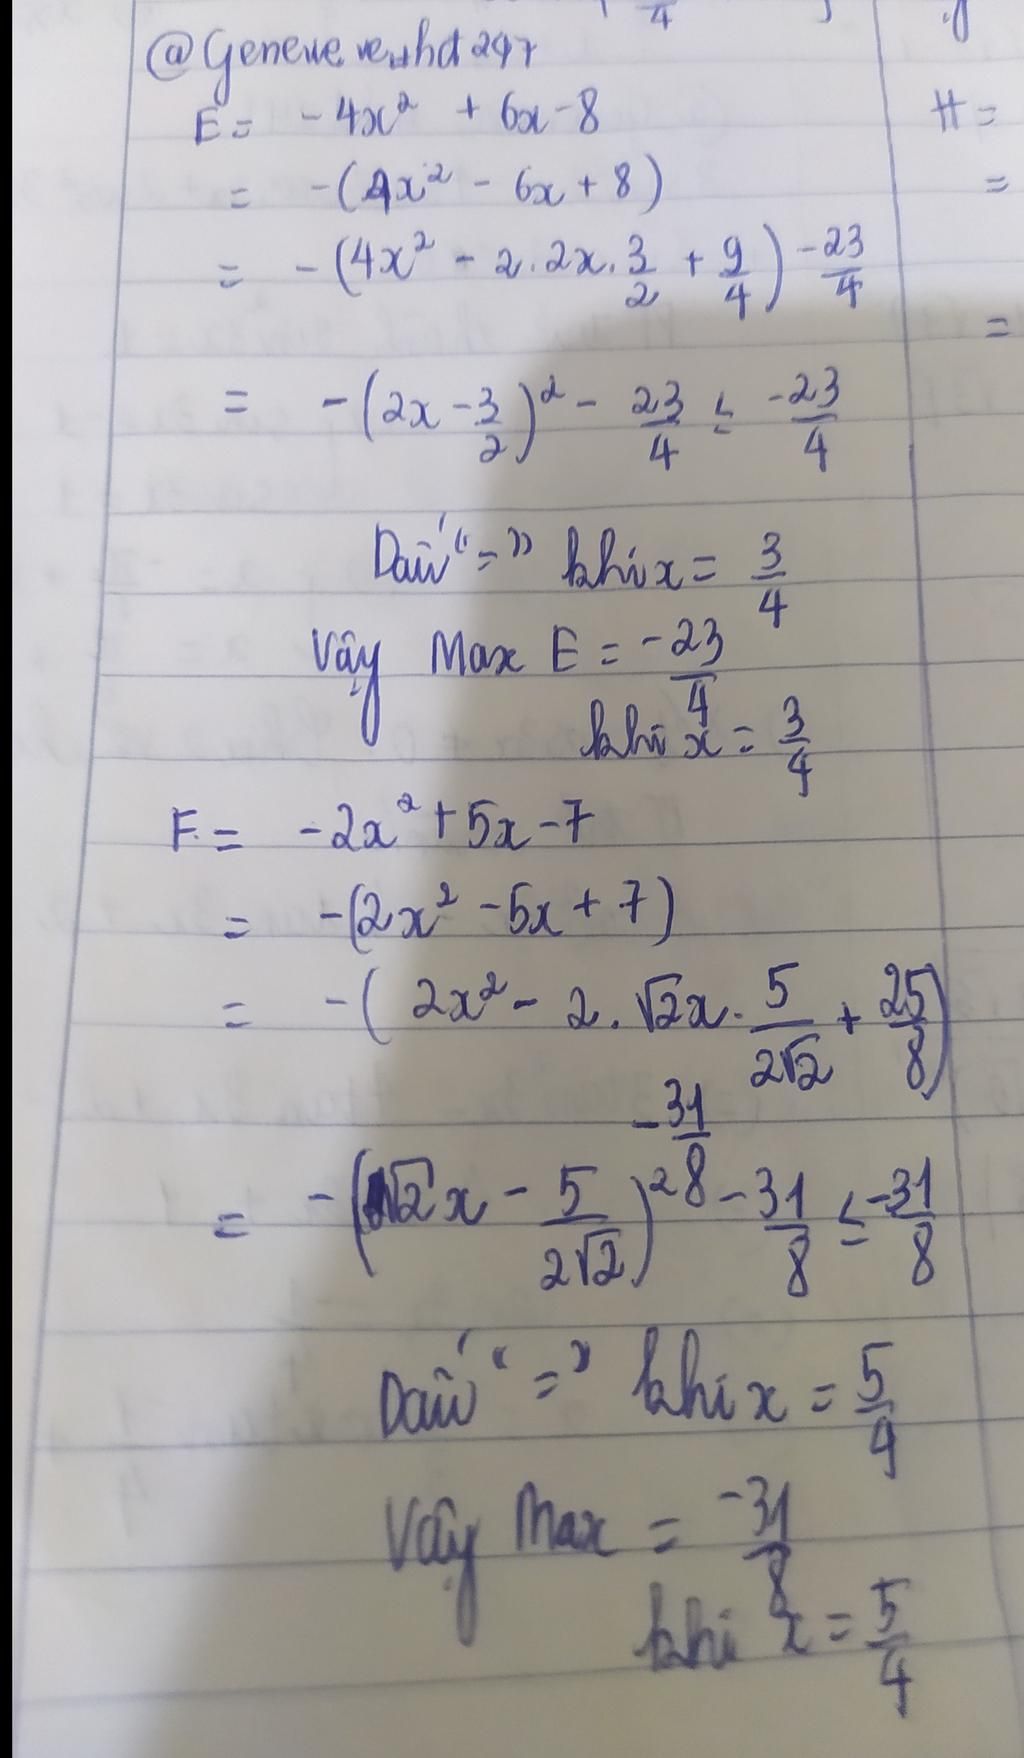 E = -4x² + 6x - 8
= -(4x² - 6x + 8)
= -(4x² - 2.2x.3/2 + 9/4) -23/4
= -(2x - 3/2)² - 23/4 ≤ -23/4
Dấu "=" khi x = 3/4
Vậy Max E = -23/4
khi x = 3/4
F = -2x² + 5x - 7
= -(2x² - 5x + 7)
= -(2x² - 2.√2x.5/2√2 + 25/8)
-31/8
= -(√2x - 5/2√2)² - 31/8 ≤ -31/8
Dấu "=" khi x = 5/4
Vậy Max = -31/8
khi x = 5/4
H =
=
=